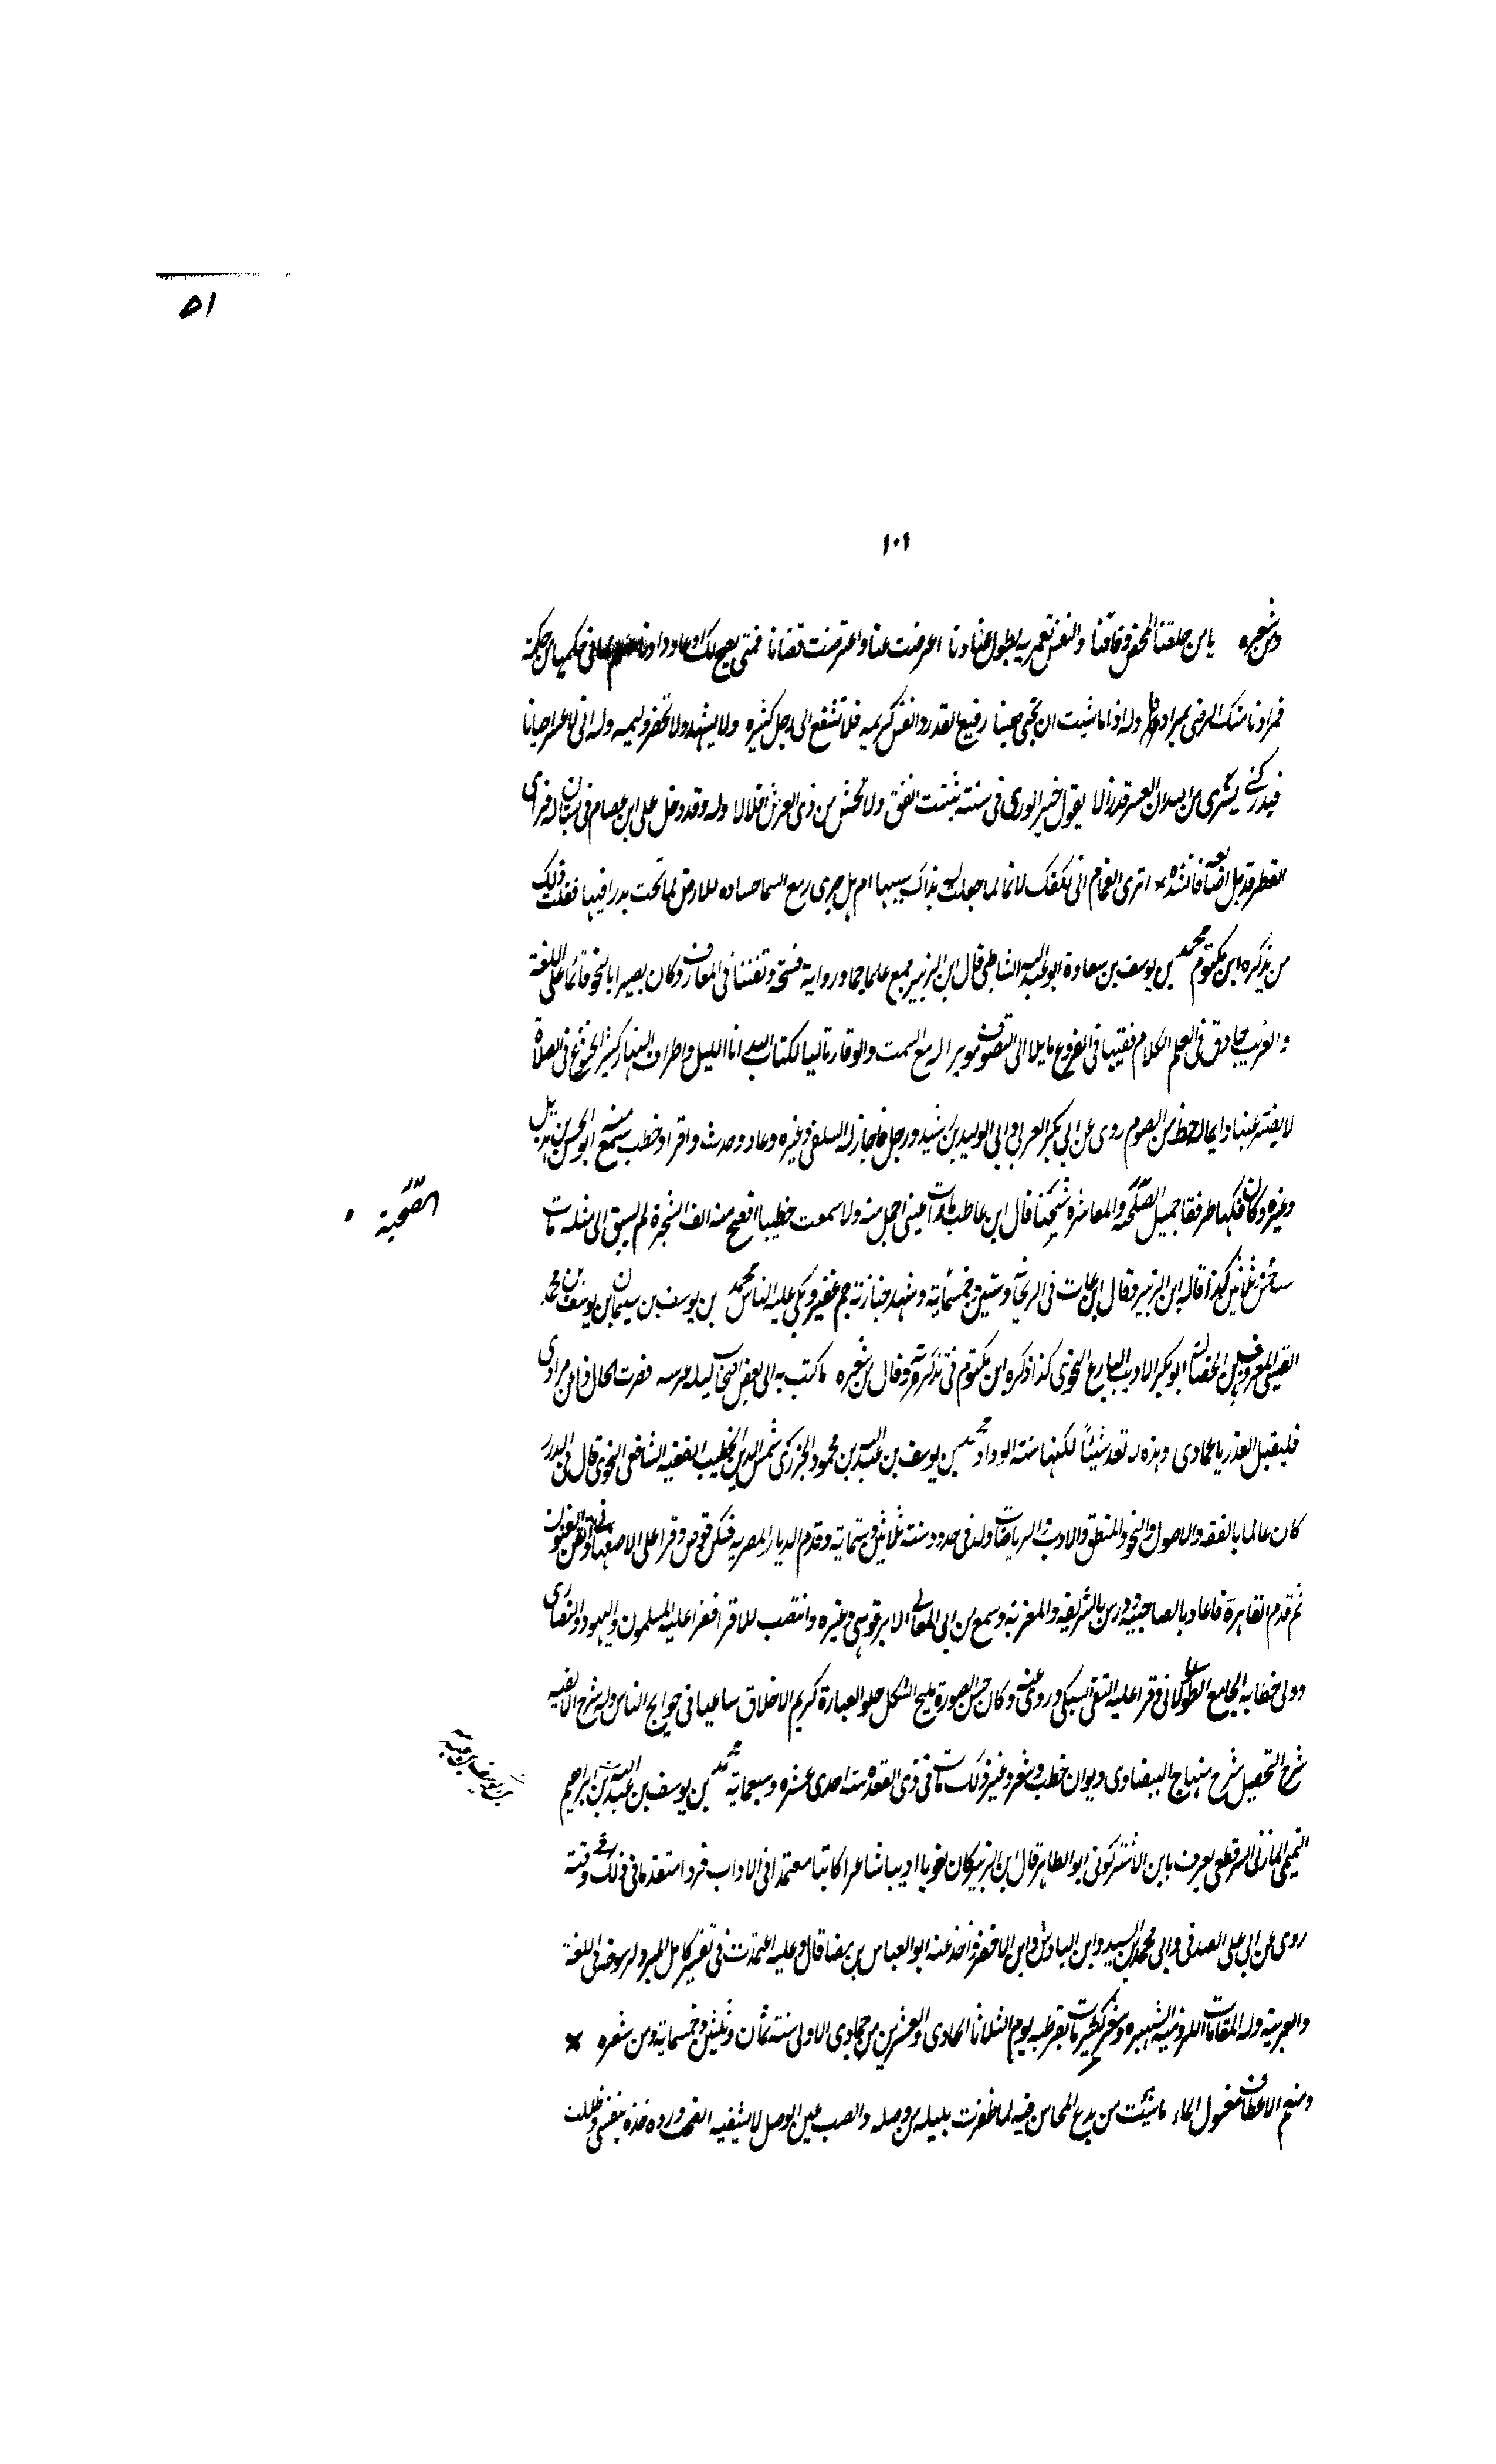 ٥١
١٠١
ومن شعره يا من خلقنا لمحض وفاقنا والنفس تعمر به بطول عنادنا اعرضت عنا واعترضت قضانا فمتى يصح لك او داودنا في حكمها من حكمة
فمرادنا منك الرضى بمرادنا وله اذا ما شيت ان تحيى معينا رفيع القدر والنفس كريمه فلا تشفع الى رجل كثيره ولا يشهد ولا تحضر وليمه وله اني لاعسر احيانا
فيدركني يسرى من الله ان العسر قد زالا يقول خير الورى في سنته ثبتت انفق ولا تخش من ذي العرش اقلالا وله وقد دخل على ابن عصام في بستان له فراى
القطر قد بل اضافانشده اترى الغمام اتى لكفك لاثما لما جعلت نداك شبيها ام هل جرى دمع السما حساده للارض لما تحت بدرا فيها فقلت ذلك
من تذكرة ابن مكتوم محمد بن يوسف بن سعادة ابو عبد الله الشاطبي قال ابن الزبير جمع علما جما ورواية فسحة وتفننا في المعارف وكان بصيرا بالنحو قائما على اللغة
والغريب حاذق في العلم الكلام فقيها في الفروع مايلا الى التصوف موثرا له مع السمت والوقار تاليا لكتاب الله انا الليل واطراف النهار كثير الخشوع في الصلاة
لا يفتر عنها دايما له حظ من الصوم روى عن ابي بكر بن العربي وابي الوليد بن رشيد ورحل فاجاز له السلفي وغيره وعاد وحدث واقرا وخطب سمع منه ابو الحسن بن هذيل
وغيره وكان فكها ظريفا جميل الصحبة والمعاشرة شيخنا قال ابن عات ما رات عيني اجل منه ولا سمعت خطيبا افصح منه الف الشجرة لم يسبق الى مثله مات
الصحبة
سنة خمس ثمانين كذا قاله ابن الزبير وقال ابن عات في اول سنة وستين وخمسمائة وشهد جنازته جم غفير وبكى عليه الناس محمد بن يوسف بن سليمان بن يوسف بن محمد
القيسي المعروف بابن الخضار ابو بكر الاديب البارع النحوي كذا ذكره ابن مكتوم في تذكرته وقال من شعره ما كتب به الى بعض اصحابه ليلة عرسه قصرت الحال في مرادي
فليقبل العذر يا عمادي وهذه لا تعد شيئا لكنها سنة الوداد محمد بن يوسف بن عبد الله بن محمود الجزري شمس الدين الخطيب الفقيه الشافعي النحوي قال في البدر
كان عالما بالفقه والاصول والنحو والمنطق والادب والرياضات ولد في حدود سنة ثلاثين وستماية وقدم الديار المصرية فسكن قوص وقرا على الاصفهاني واتقن الفنون
ثم قدم القاهرة فاعاد بالصاحبية ودرس بالشريفية والمعزية وسمع من ابي المعالي الابرقوهي وغيره وانتصب للاقرا فقرا عليه المسلمون واليهود والنصارى
وولي خطابة الجامع الطولاني وقرا عليه التقي السبكي وروى عنه وكان حسن الصورة مليح الشكل حلو العبارة كريم الاخلاق ساعيا في حوايج الناس وله شرح الالفيه
شرح التحصيل شرح منهاج البيضاوي وديوان خطب وشعر وغير ذلك مات في ذي القعدة سنة احدى عشره وسبعماية محمد بن يوسف بن عبد الله بن ابراهيم
التميمي المازني السرقسطي يعرف بابن الاشتركوني ابو الطاهر قال ابن الزبير كان لغويا اديبا شاعرا كاتبا معتمدا في الاداب فردا متقدما في ذلك في وقته
روى عن ابي علي الصدفي وابي محمد بن السيد وابن الباذش وابن الاخضر واخذ عنه ابو العباس بن مضا قال وعليه اعتمدت في تفسير كامل المبرد لرسوخه في اللغة
والعربية وله المقامات اللزومية الشهيره وشعر كثير مات بقرطبه يوم الثلاثا الحادي والعشرين من جمادى الاولى سنة ثمان وثلثين وخمسماية ومن شعره
ومنعم الاعطاف معسول اللماء ما شئت من بدع المحاسن فيه لما ظفرت بليله من وصله والصب غير الوصل لا يشفيه انضحت ورده خده بنفسي وظللت